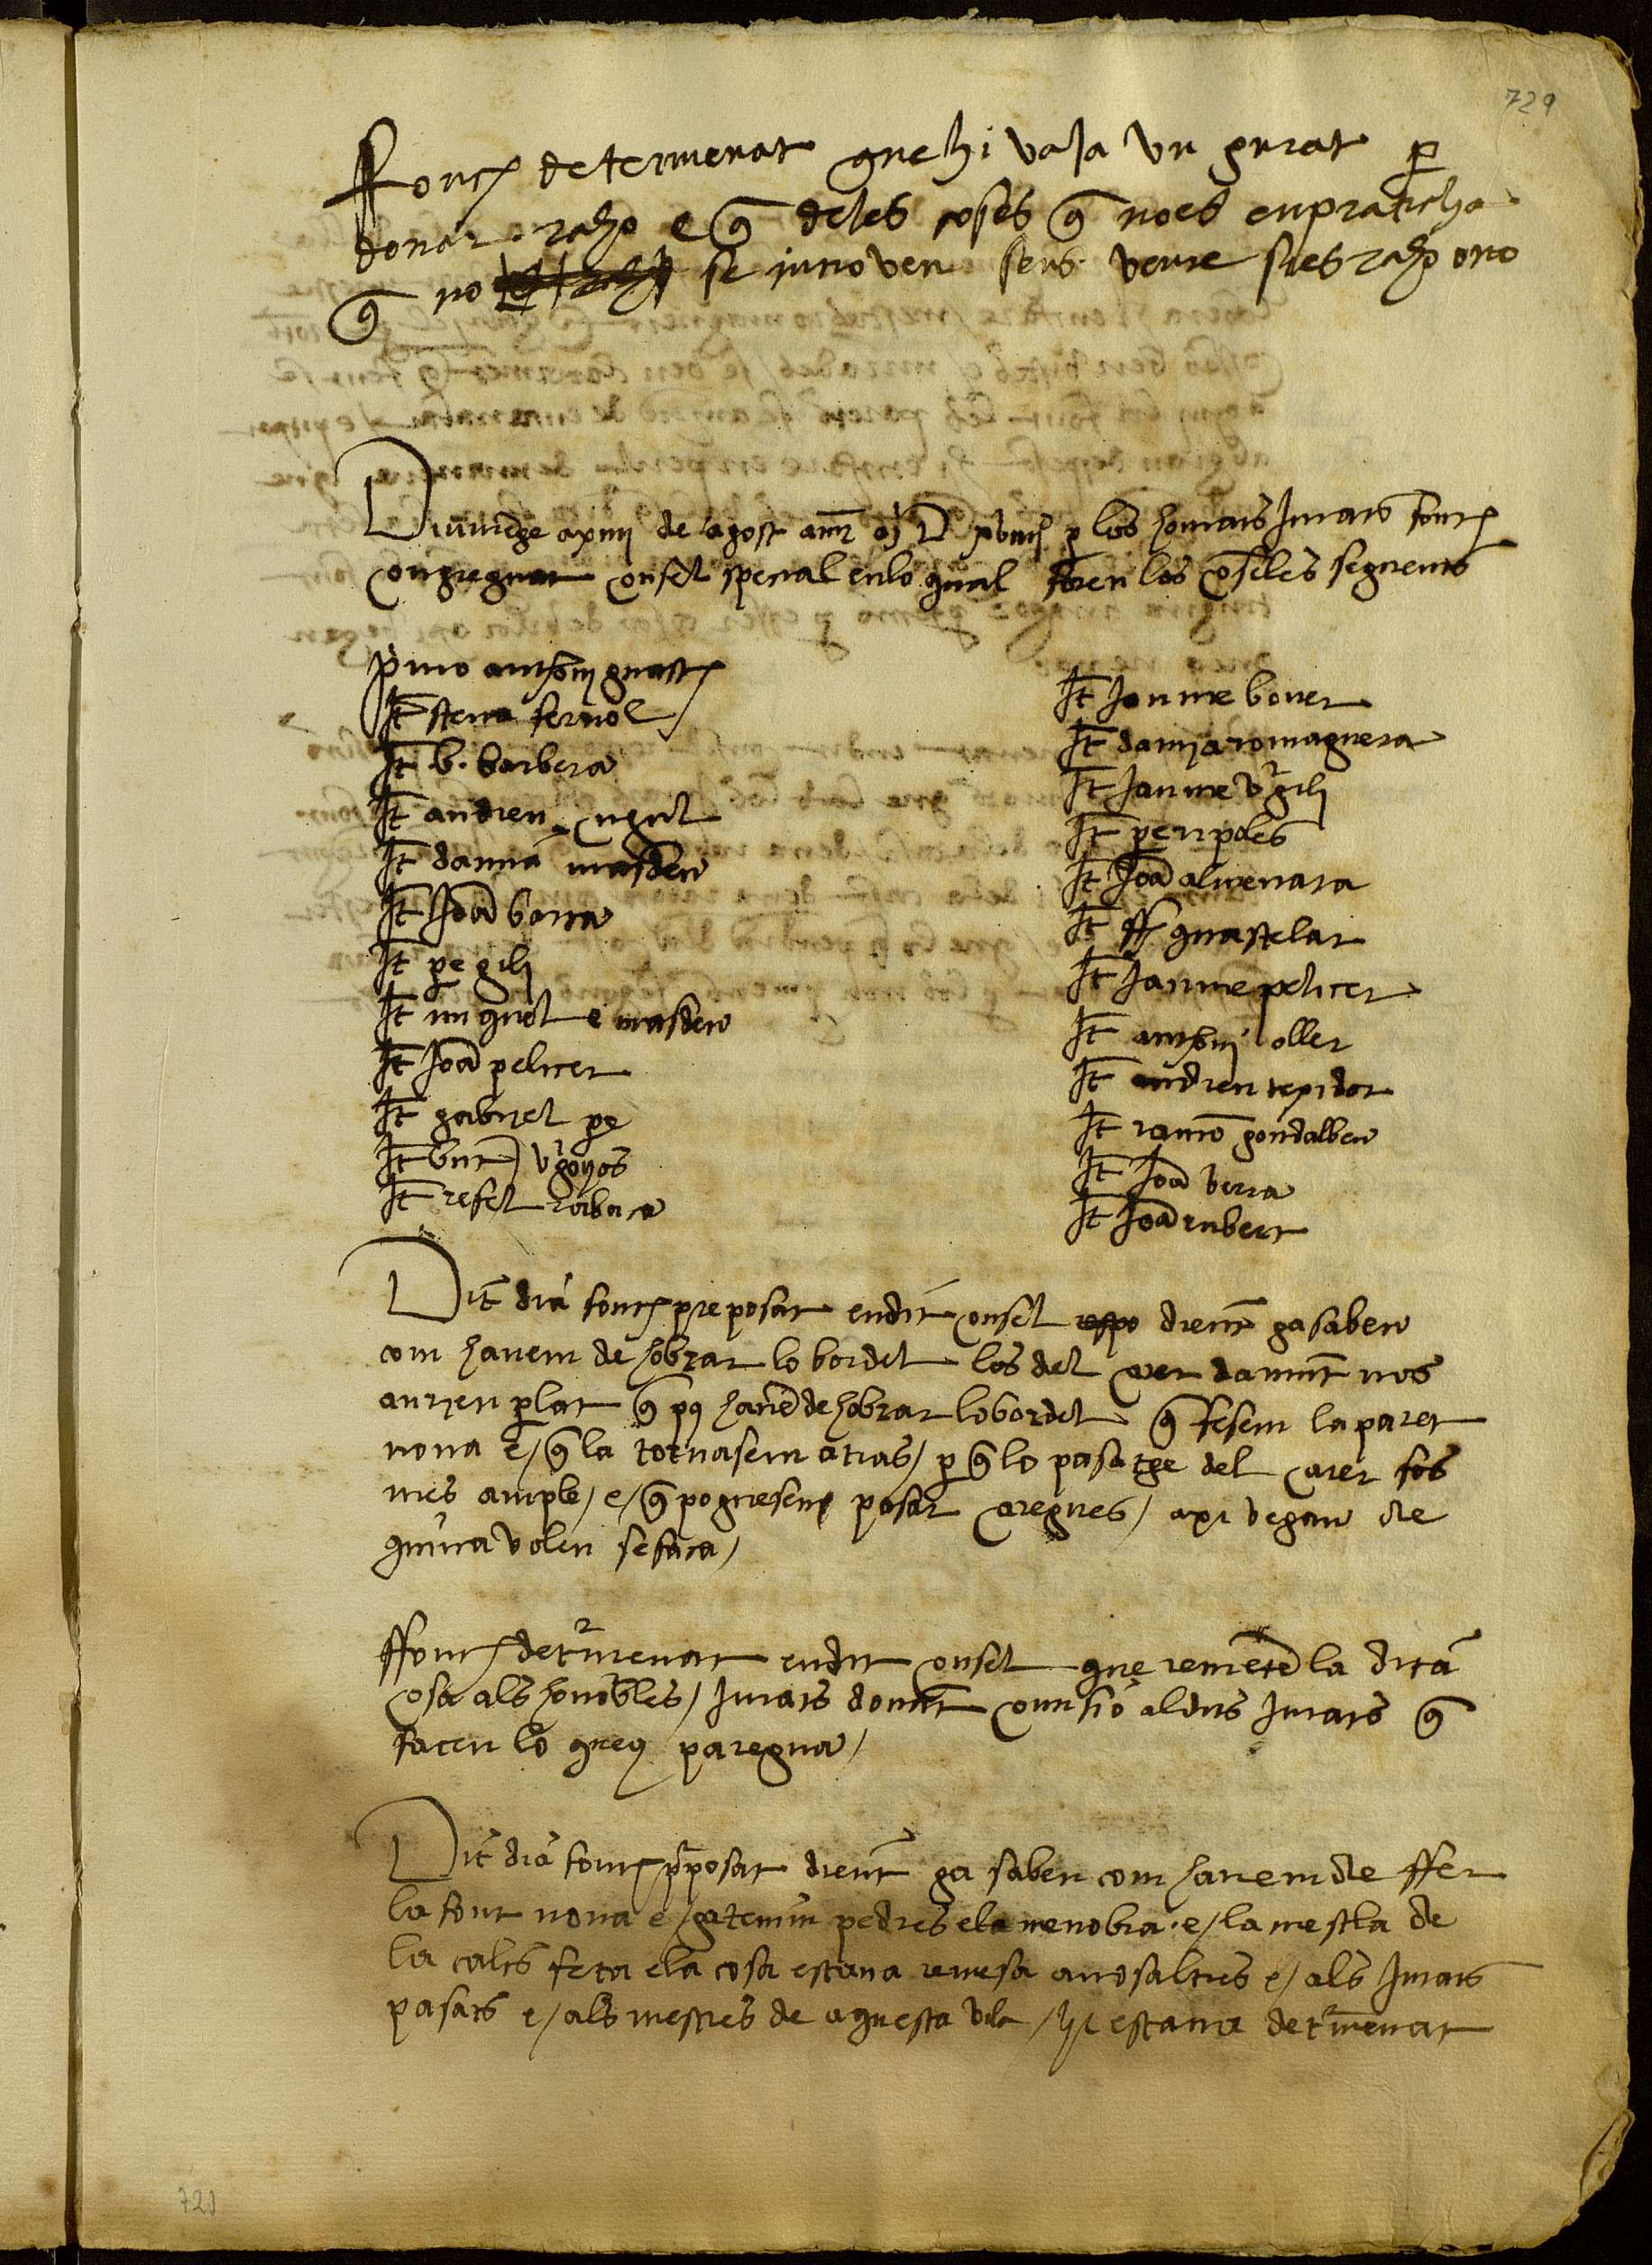 729
ffonch determenat que hi vaja un jurat per
donar raho e q̃ deles coses q̃ noes enpraticha
q̃ no se innoven sens veure sies raho ono
Diumẽge a xiiij de agost Any M D xviiij p los honrats Jurats fonch
congreguat consel special enlo qual foren los cõselés seguents
primo anthonj guasch
It steva fernol
It b. barbera
It andreu cugul
It damià masdeu
It Joã borra
It pe gilj
It miquel e masdeu
It Joã pelicer
It gabriel pe
It bñt vrgonyos
It refel rabaca
It Jaume bover
It damja romaguera
It Jaume vrgilj
It peri poles
It Joã almenara
It ff guastelar
It Jaume pelicer
It anthonj oller
It andreu texidor
It ramõ gondalbeu
It Joã verra
It Joã rubert
Dit dia fonch preposat endit consel dient ja saben
com havem de hobrar lo bordel los del carer damunt nos
aurien parlat q̃ pux havẽ de hobrar lo bordel q̃ fesem la paret
nova e / q̃ la tornasem atras / per q̃ lo pasatge del carer fos
mes ample / e / q̃ poguesem posar caregues / axi vegau de
quina volen se faca /
ffonch detrmenat endit consel que remetẽ la dita
cosa als honorbles / Jurats donant comisio aldits Jurats q̃
facen lo quels paregua /
Dit dia fonch preposat dient ja saben com havem de ffer
la font nova e / ja tenim pedres e la menobra e / la mescla de
la cals feta e la cosa estava remesa anosaltres e / als Jurats
pasats e / als mestres de aquesta vila / hi estava detrmenat
729